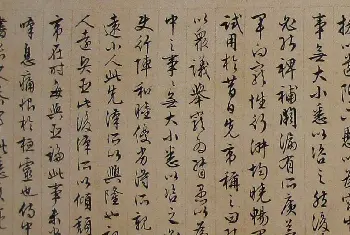 事無大小悉以咨之然後
必能裨補闕漏有所廣益
軍向寵性行淑均曉暢軍
試用於昔日先帝稱之曰能
以眾議舉寵為督愚以為
中之事無大小悉以咨之
使行陣和睦優劣得所親
遠小人此先漢所以興隆也親
人遠賢臣此後漢所以傾頹
帝在時每與臣論此事未嘗
嘆息痛恨於桓靈也侍中